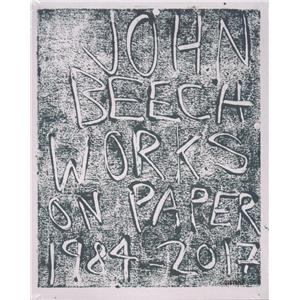 JOHN
BEECH
WORKS
ON PAPER
1984-2017